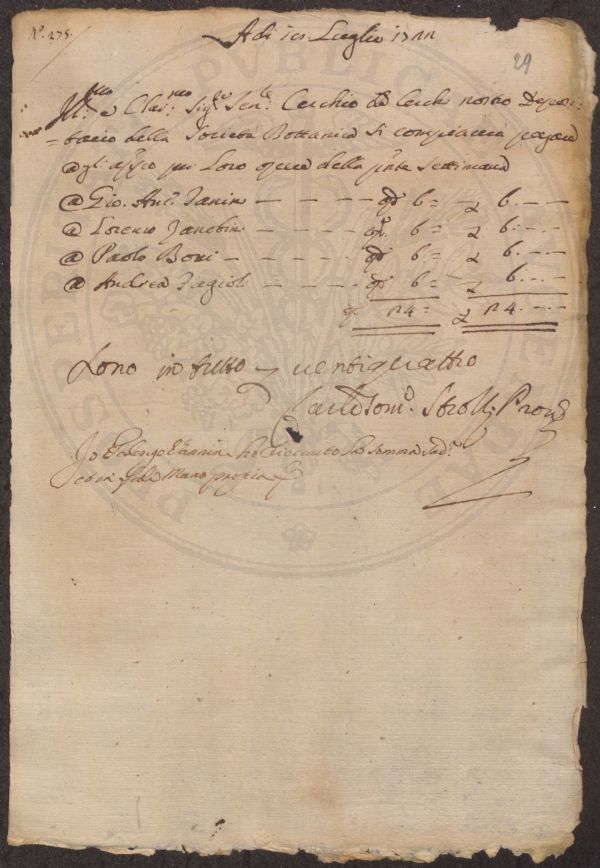 N.° 275.
29
A di Luglio
Ill.mo e Clar.mo Sig.re Sen.te Cerchio de Cerchi nostro Deposi=
=tario della Società Bottanica si compiaccia pagare
@ gl'app.o per Loro opere della p.nte Settimana
@ Gio. Ant.o Zanin — — — — op. 6 = — £ 6. — —
@ Lorenzo Zanobin — — — op. 6 = £ 6. — —
@ Paolo Boni — — — — op. 6 = £ 6. — —
@ Andrea Fagioli — — — op. 6 = £ 6. — —
op. 24 = £ 24. — —
Sono in tutto £ ventiquattro
Carlo Tom.o Strozzi Prov.e
Io ho ricevuto la somma sud.a
mano propria
PVBLIC
PROSPER